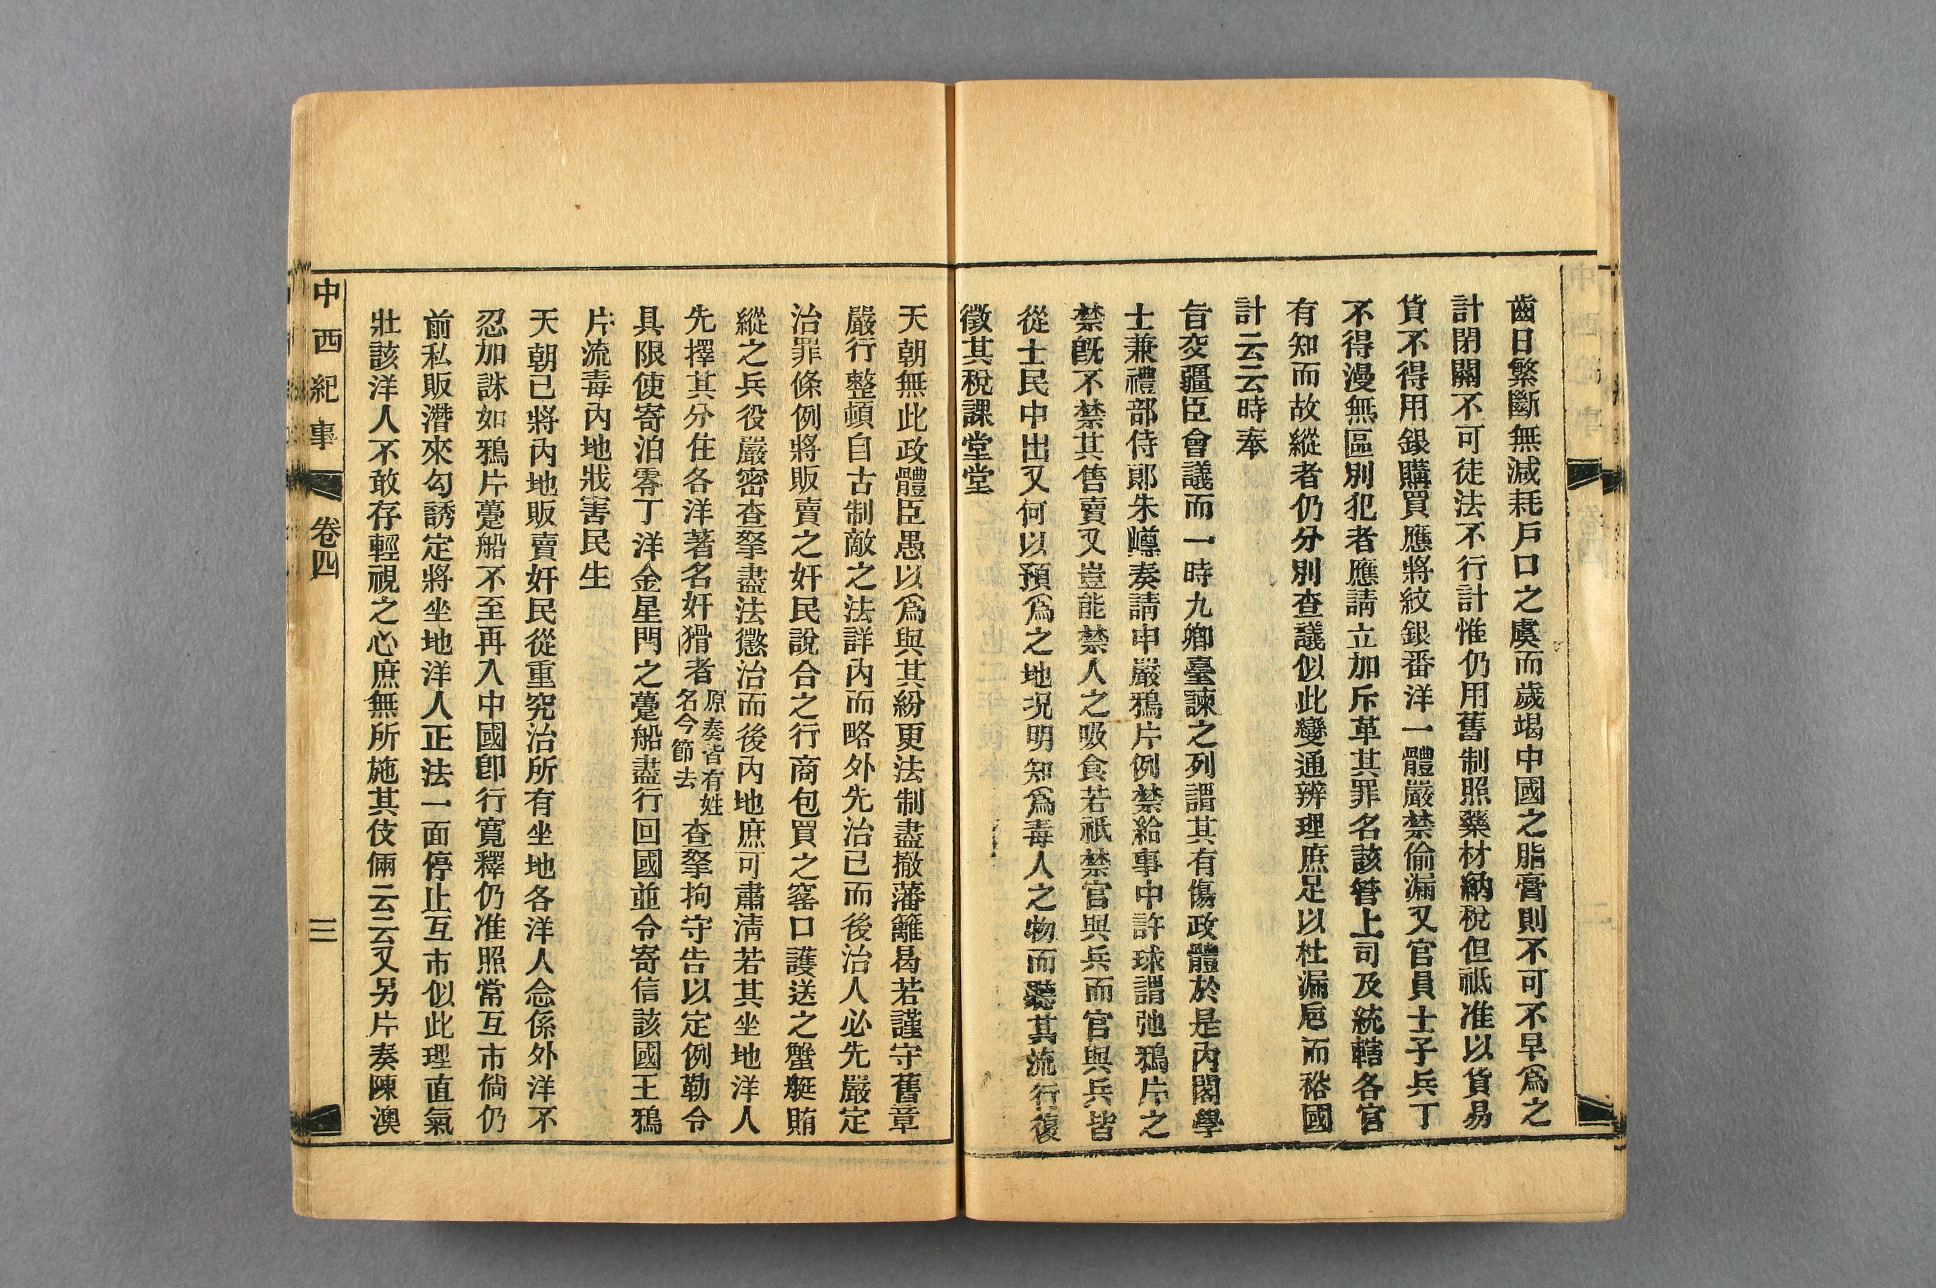 齒日繁斷無減耗戶口之虞而歲竭中國之脂膏則不可不早爲之
計閉關不可徒法不行計惟仍用舊制照藥材納稅但祗准以貨易
貨不得用銀購買應將紋銀番洋一體嚴禁偷漏又官員士子兵丁
不得漫無區別犯者應請立加斥革其罪名該管上司及統轄各官
有知而故縱者仍分別查議似此變通辨理庶足以杜漏巵而裕國
計云云時奉
旨交疆臣會議而一時九卿臺諫之列謂其有傷政體於是內閣學
士兼禮部侍郞朱嶟奏請申嚴鴉片例禁給事中許球謂弛鴉片之
禁旣不禁其售賣又豈能禁人之吸食若祇禁官與兵而官與兵皆
從士民中出又何以預爲之地况明知爲毒人之物而聽其流行復
徵其稅課堂堂
天朝無此政體臣愚以爲與其紛更法制盡撤藩籬曷若謹守舊章
嚴行整頓自古制敵之法詳內而略外先治己而後治人必先嚴定
治罪條例將販賣之奸民說合之行商包買之窰口護送之蟹艇賄
縱之兵役嚴密查拏盡法懲治而後內地庶可肅淸若其坐地洋人
先擇其分住各洋著名奸猾者原奏皆有姓名今節去查拏拘守告以定例勒令
具限使寄泊零丁洋金星門之躉船盡行回國並令寄信該國王鴉
片流毒內地戕害民生
天朝已將內地販賣奸民從重究治所有坐地各洋人念係外洋不
忍加誅如鴉片躉船不至再入中國卽行寬釋仍准照常互市倘仍
前私販潛來勾誘定將坐地洋人正法一面停止互市似此理直氣
壯該洋人不敢存輕視之心庶無所施其伎倆云云又另片奏陳澳
中西紀事 卷四 三